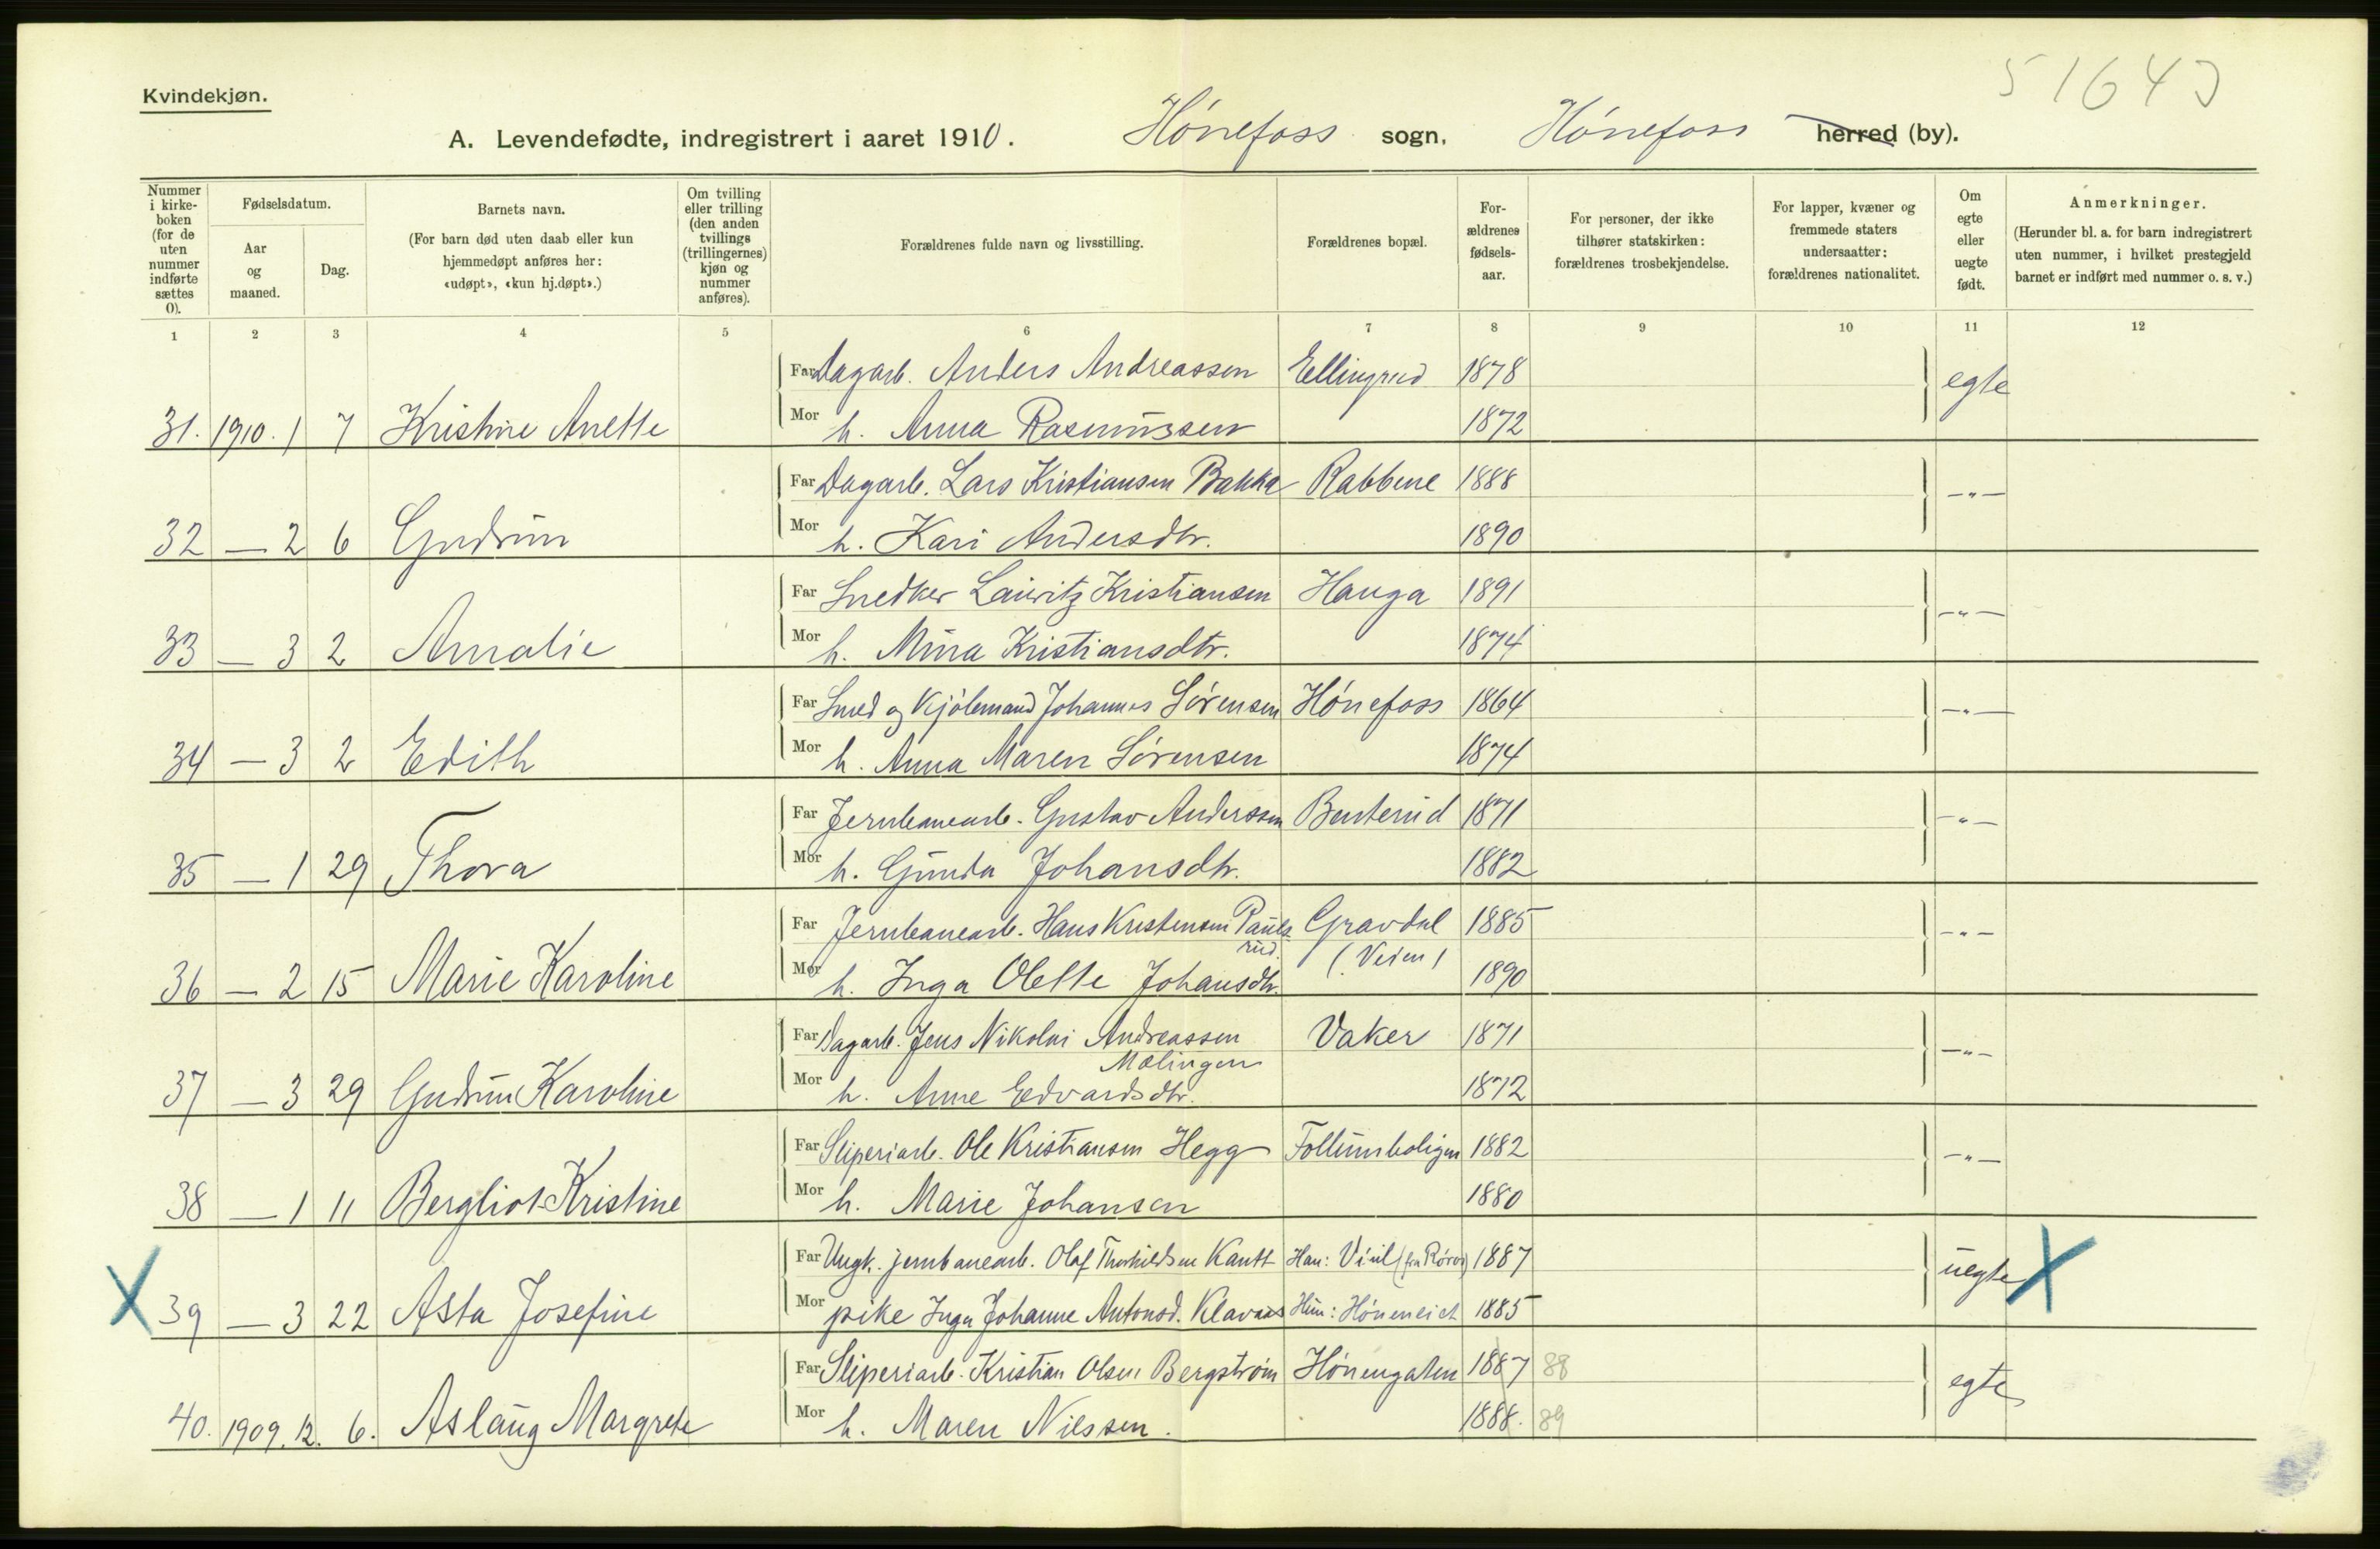 Kvindekjøn.
51643
A. Levendefødte, indregistrert i aaret 1910. Hónefoss sogn, Hónefoss herred (by).
Nummer i kirke-boken (for de uten nummer indførte sættes 0).
Fødselsdatum.
Aar og maaned.
Dag.
Barnets navn.
(For barn død uten daab eller kun hjemmedøpt anføres her: «udøpt», «kun hj.døpt».)
Om tvilling eller trilling (den anden tvillings (trillingernes) kjøn og nummer anføres).
Forældrenes fulde navn og livsstilling.
Forældrenes bopæl.
For-ældrenes fødsels-aar.
For personer, der ikke tilhører statskirken: forældrenes trosbekjendelse.
For lapper, kvæner og fremmede staters undersaatter: forældrenes nationalitet.
Om egte eller uegte født.
Anmerkninger.
(Herunder bl. a. for barn indregistrert uten nummer, i hvilket prestegjeld barnet er indført med nummer o. s. v.)
1 2 3 4 5 6 7 8 9 10 11 12
Far Dagarb. Anders Andreassen Ellingsrud 1878 egte
31. 1910. 1 7 Kristine Anette Mor h. Anna Rasmussen 1872
Far Dagarb. Lars Kristiansen Bakka Rabbene 1888 —"—
32 — 2 6 Gudrun Mor h. Kari Andersdtr. 1890
Far Snedker Lauritz Kristiansen Hauga 1891 —"—
33 — 3 2 Amalie Mor h. Mina Kristiansdtr. 1874
Far Smed og Kjólemand Johannes Sórensen Hónefoss 1864 —"—
34 — 3 2 Edith Mor h. Anna Maren Sórensen 1874
Far Jernbanearb. Gustav Anderssen Busterud 1871 —"—
35 — 1 29 Thora Mor h. Gunda Johansdtr. 1882
Far Jernbanearb. Hans Kristensen Pauls- Gravdal 1885 —"—
rud. (Veien)
36 — 2 15 Marie Karoline Mor h. Inga Olette Johansdtr. 1890
Far Dagarb. Jens Nikolai Andreassen Vaker 1871 —"—
Mælingen
37 — 3 29 Gudrun Karoline Mor h. Anne Edvardsdtr. 1872
Far Sliperiarb. Ole Kristiansen Hegg Follumboligen 1882 —"—
38 — 1 11 Bergliot Kristine Mor h. Marie Johansen 1880
Far Ungk. jernbanearb. Olaf Thorkildsen Kantt Han: Viul (fra Róros) 1887 uegte X
X 39 — 3 22 Asta Josefine Mor pike Inga Johanne Antonsd. Klavnæs Hun: 1885
Far Sliperiarb. Kristian Olsen Bergstróm Hónengaten 1887 88 egte
40. 1909. 12. 6. Aslaug Margrete Mor h. Maren Nilssen. 1888. 89